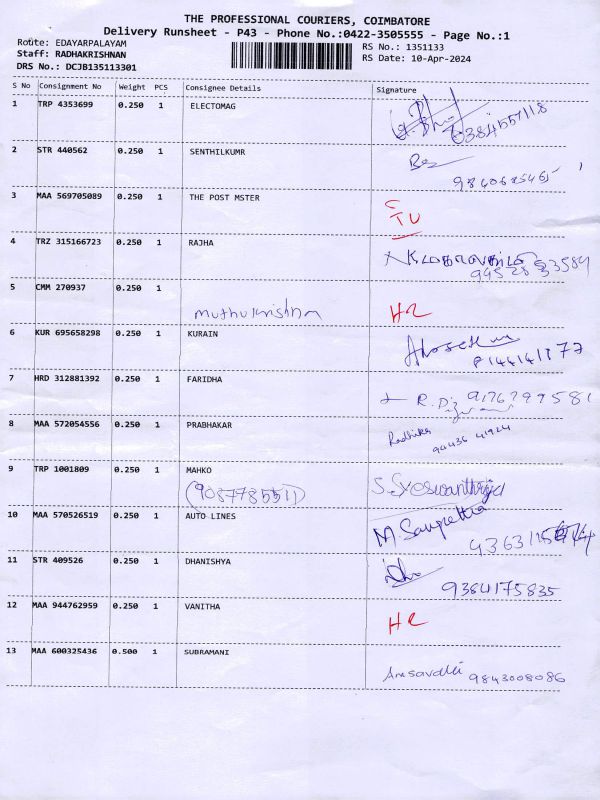 THE PROFESSIONAL COURIERS, COIMBATORE
Delivery Runsheet - P43 - Phone No.:0422-3505555 - Page No.:1
Route: EDAYARPALAYAM
Staff: RADHAKRISHNAN
DRS No.: DCJB135113301
RS No.: 1351133
RS Date: 10-Apr-2024
S No Consignment No Weight PCS Consignee Details Signature
1 TRP 4353699 0.250 1 ELECTOMAG
2 STR 440562 0.250 1 SENTHILKUMR
3 MAA 569705089 0.250 1 THE POST MSTER
4 TRZ 315166723 0.250 1 RAJHA
5 CMM 270937 0.250 1 muthukrishna HR
6 KUR 695658298 0.250 1 KURAIN
7 HRD 312881392 0.250 1 FARIDHA 9176799581
8 MAA 572054556 0.250 1 PRABHAKAR Radhika 94436 41924
9 TRP 1001809 0.250 1 MAHKO
(9087785511)
10 MAA 570526519 0.250 1 AUTO LINES
11 STR 409526 0.250 1 DHANISHYA 9364175835
12 MAA 944762959 0.250 1 VANITHA HR
13 MAA 600325436 0.500 1 SUBRAMANI 9843008086